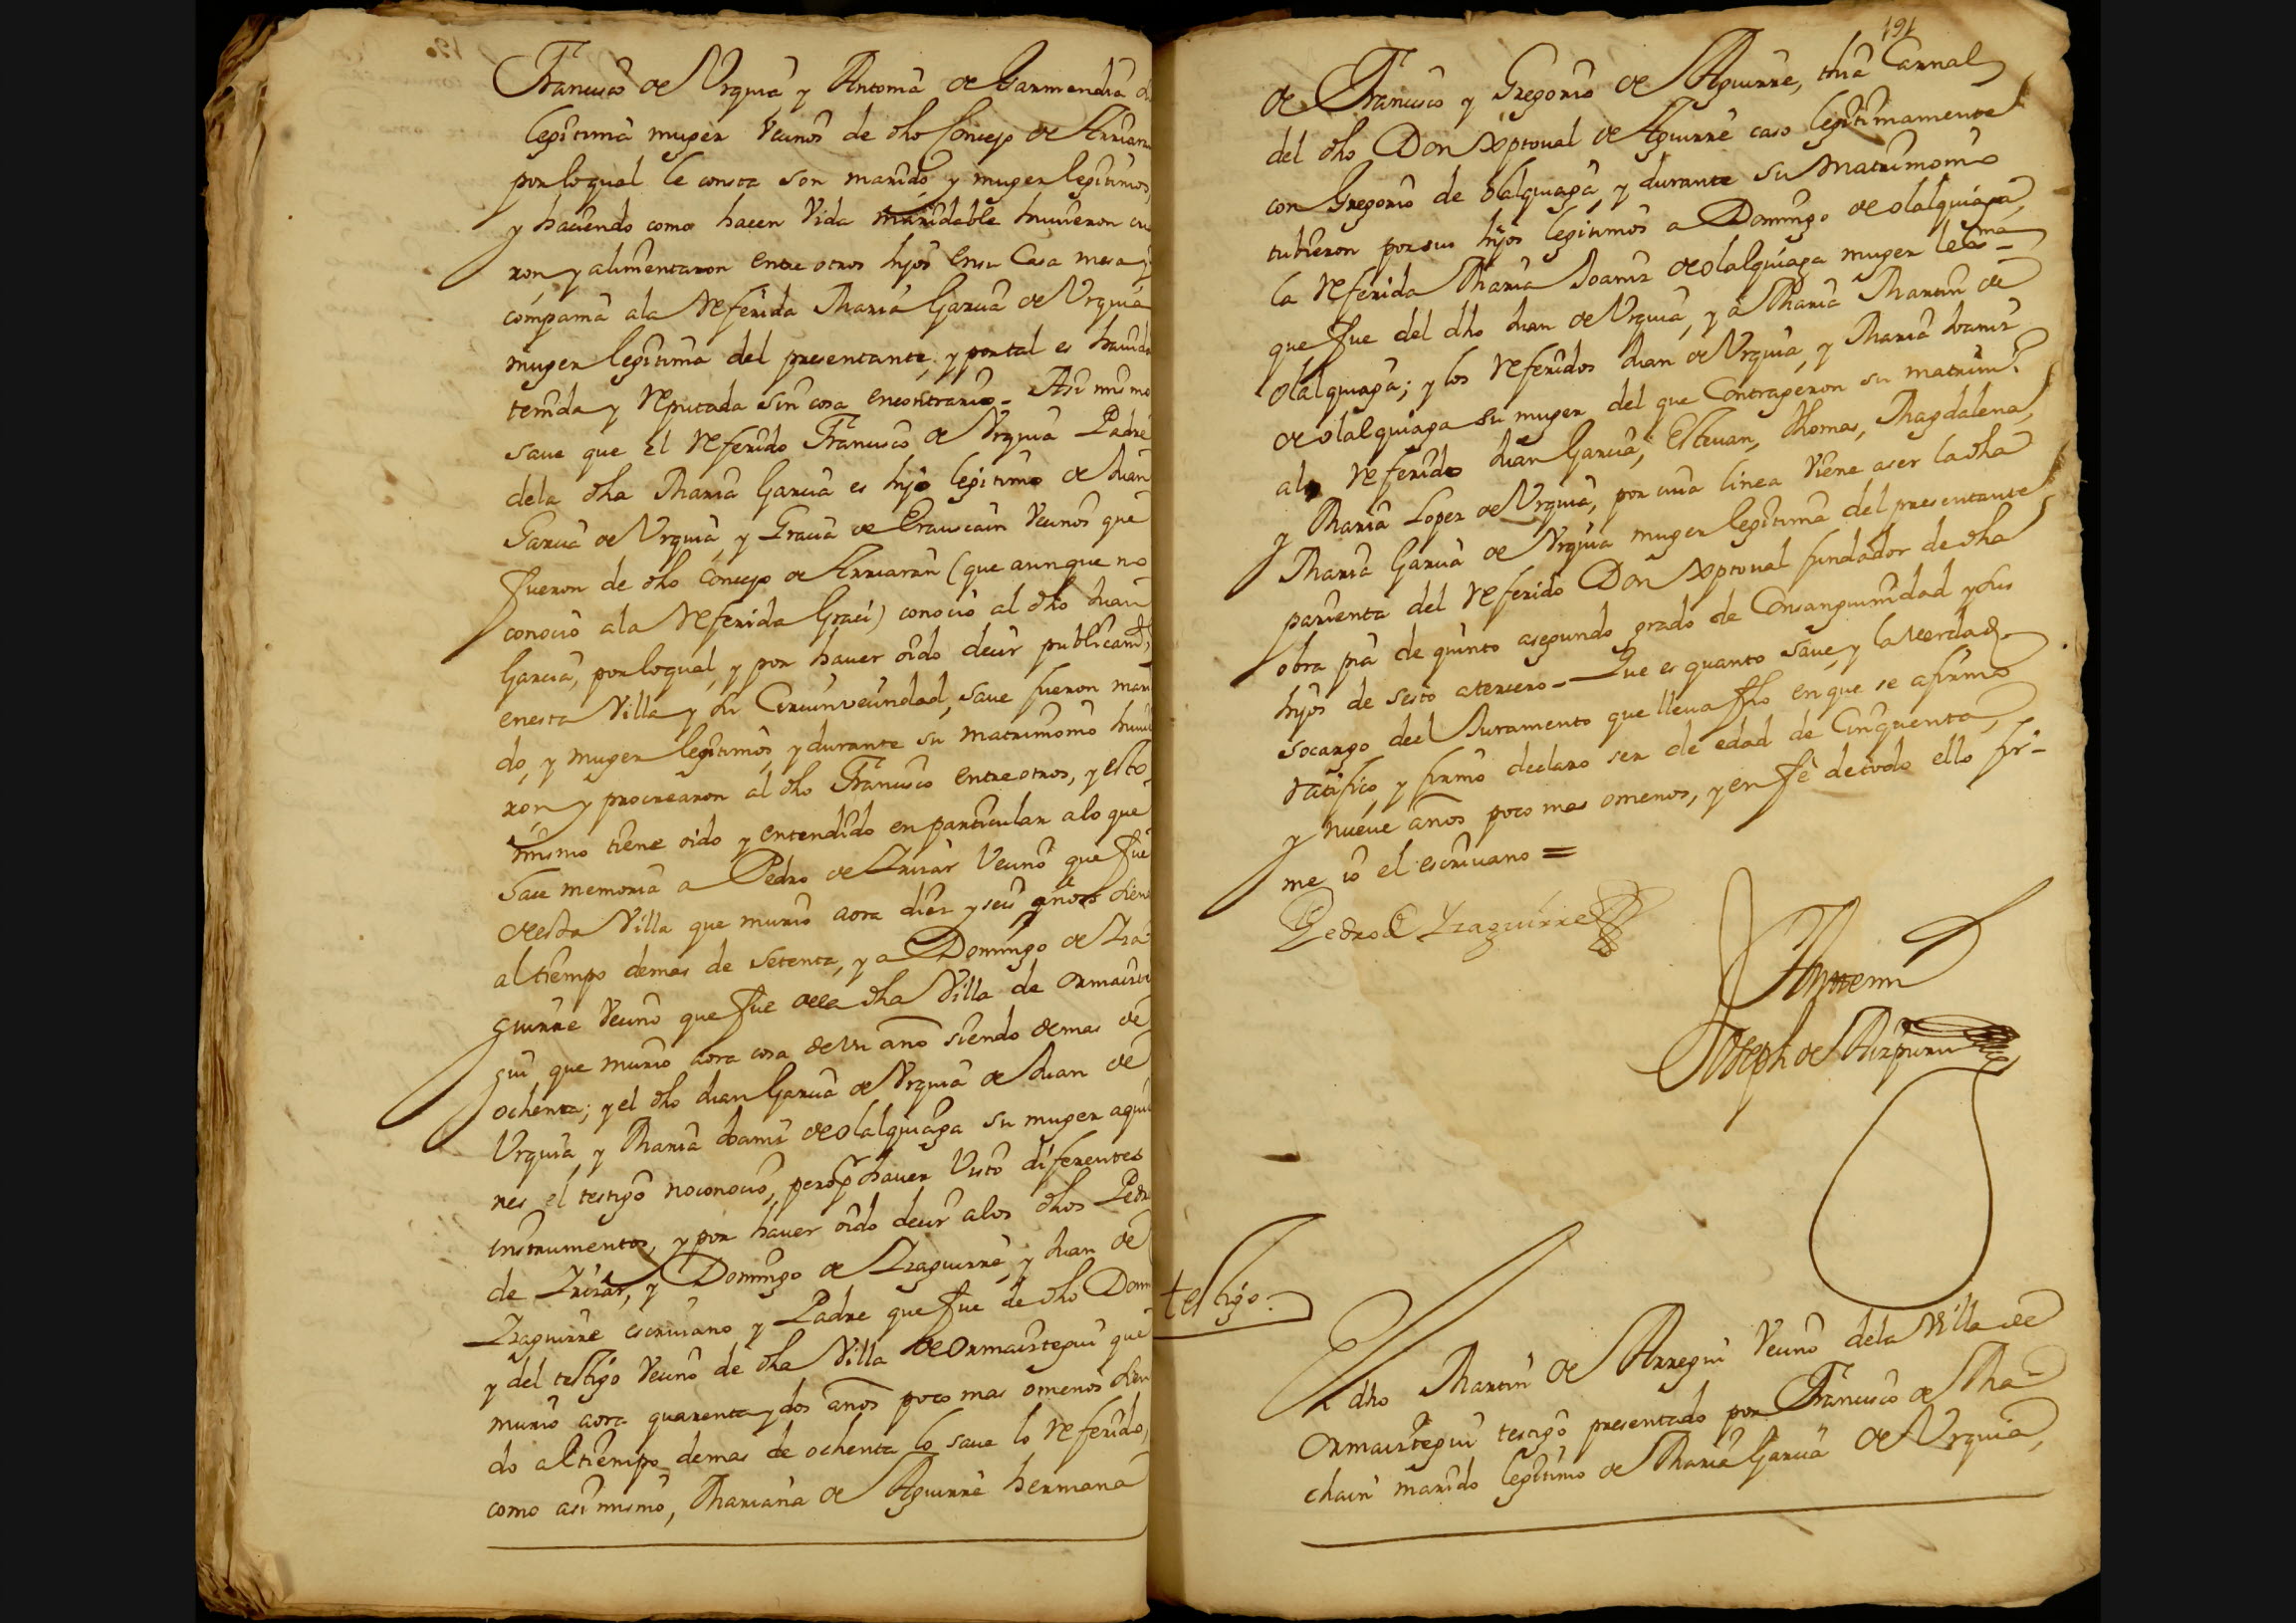 Franco de Vrquia y Antonia de Garmendia su
legitima muger Vecinos de dho Concejo de Arriaran
por lo qual le consta son marido y muger legitimos,
y haciendo como hacen Vida maridable huuieron cria
ron y alimentaron entre otros hijos en su Casa mesa y
compania a la referida Maria Garcia de Vrquia
muger legitima del presentante, y por tal es hauida
tenida y reputada sin cosa en contrario - Asi mismo
saue que el referido Franco de Vrquia Padre
de la dha Maria Garcia es hijo legitimo de Juan
Garcia de Vrquia y Gracia de Erauscain Vecinos que
fueron de dho Concejo de Arriaran (que aunque no
conocio a la referida Graci) conocio al dho Juan
Garcia, por lo qual, y por hauer oido decir publicamte
en esta Villa y su Circunvecindad, saue fueron mari
do, y muger legitimos, y durante su matrimonio huuie
ron y procrearon al dho Franco entre otros, y esto
mismo tiene oido y entendido en particular a lo que
hace memoria a Pedro de Irizar Vecino que fue
de esta Villa que murio aora diez y seis años siendo
al tiempo de mas de setenta, y a Domingo de Iza
guirre Vecino que fue de la dha Villa de Ormaizte
gui que murio aora cosa de un año siendo de mas de
ochenta; y el dho Juan Garcia de Vrquia de Juan de
Vrquia y Maria Joaniz de Olalquiaga su muger a quie
nes el testigo no conocio, pero p hauer Visto diferentes
instrumentos, y por hauer oido decir a los dhos Pedro
de Irizar, y Domingo de Izaguirre, y Juan de
Izaguirre escriuano y Padre que fue de dho Domingo
y del testigo Vecino de dha Villa de Ormaiztegui que
murio aora quarenta y dos años poco mas o menos sien
do al tiempo de mas de ochenta lo saue lo referido,
como asi mismo, Mariana de Aguirre hermana
191
de Francisco y Gregorio de Aguirre, thia Carnal
del dho Don Xptoual de Aguirre caso legitimamente
con Gregorio de Olalquiaga, y durante su Matrimonio
tubieron por sus hijos legitimos a Domingo de Olalquiaga,
la referida Maria Joaniz de Olalquiaga muger legma
que fue del dho Juan de Vrquia, y a Maria Martin de
Olalquiaga; y los referidos Juan de Vrquia, y Maria Joaniz
de Olalquiaga su muger del que Contrageron su matrimo
al referido Juan Garcia; Esteuan, Thomas, Magdalena,
y Maria Lopez de Vrquia, por cuia linea viene a ser la dha
Maria Garcia de Vrquia muger legitima del presentante
parienta del referido Don Xptoual fundador de dha
obra pia de quinto a segundo grado de Consanguinidad y sus
hijos de sesto a tercero - Que es quanto saue, y la verdad
so cargo del Juramento que lleua fho en que se afirmo
ratifico, y firmo declaro ser de edad de Cinquenta,
y nueue años poco mas o menos, y en fe de todo ello fir-
me io el escriuano =
Pedro de Yzaguirre
Antemi
Joseph de Aizpuru
testigo.
El dho Martin de Arregui Vecino de la Villa de
Ormaiztegui testigo presentado por Francisco de Ma-
chain marido legitimo de Maria Garcia de Vrquia,